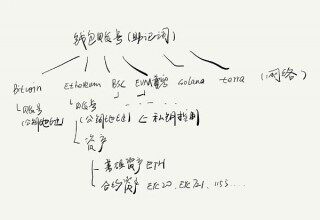 钱包账号(助记词)
Bitcoin Ethereum BSC EVM Solana terra (网络)
账号 账号 ......
(公钥地址) (公钥地址) ← 私钥控制
资产
基础资产 ETH
合约资产 ERC20、ERC721、1155....